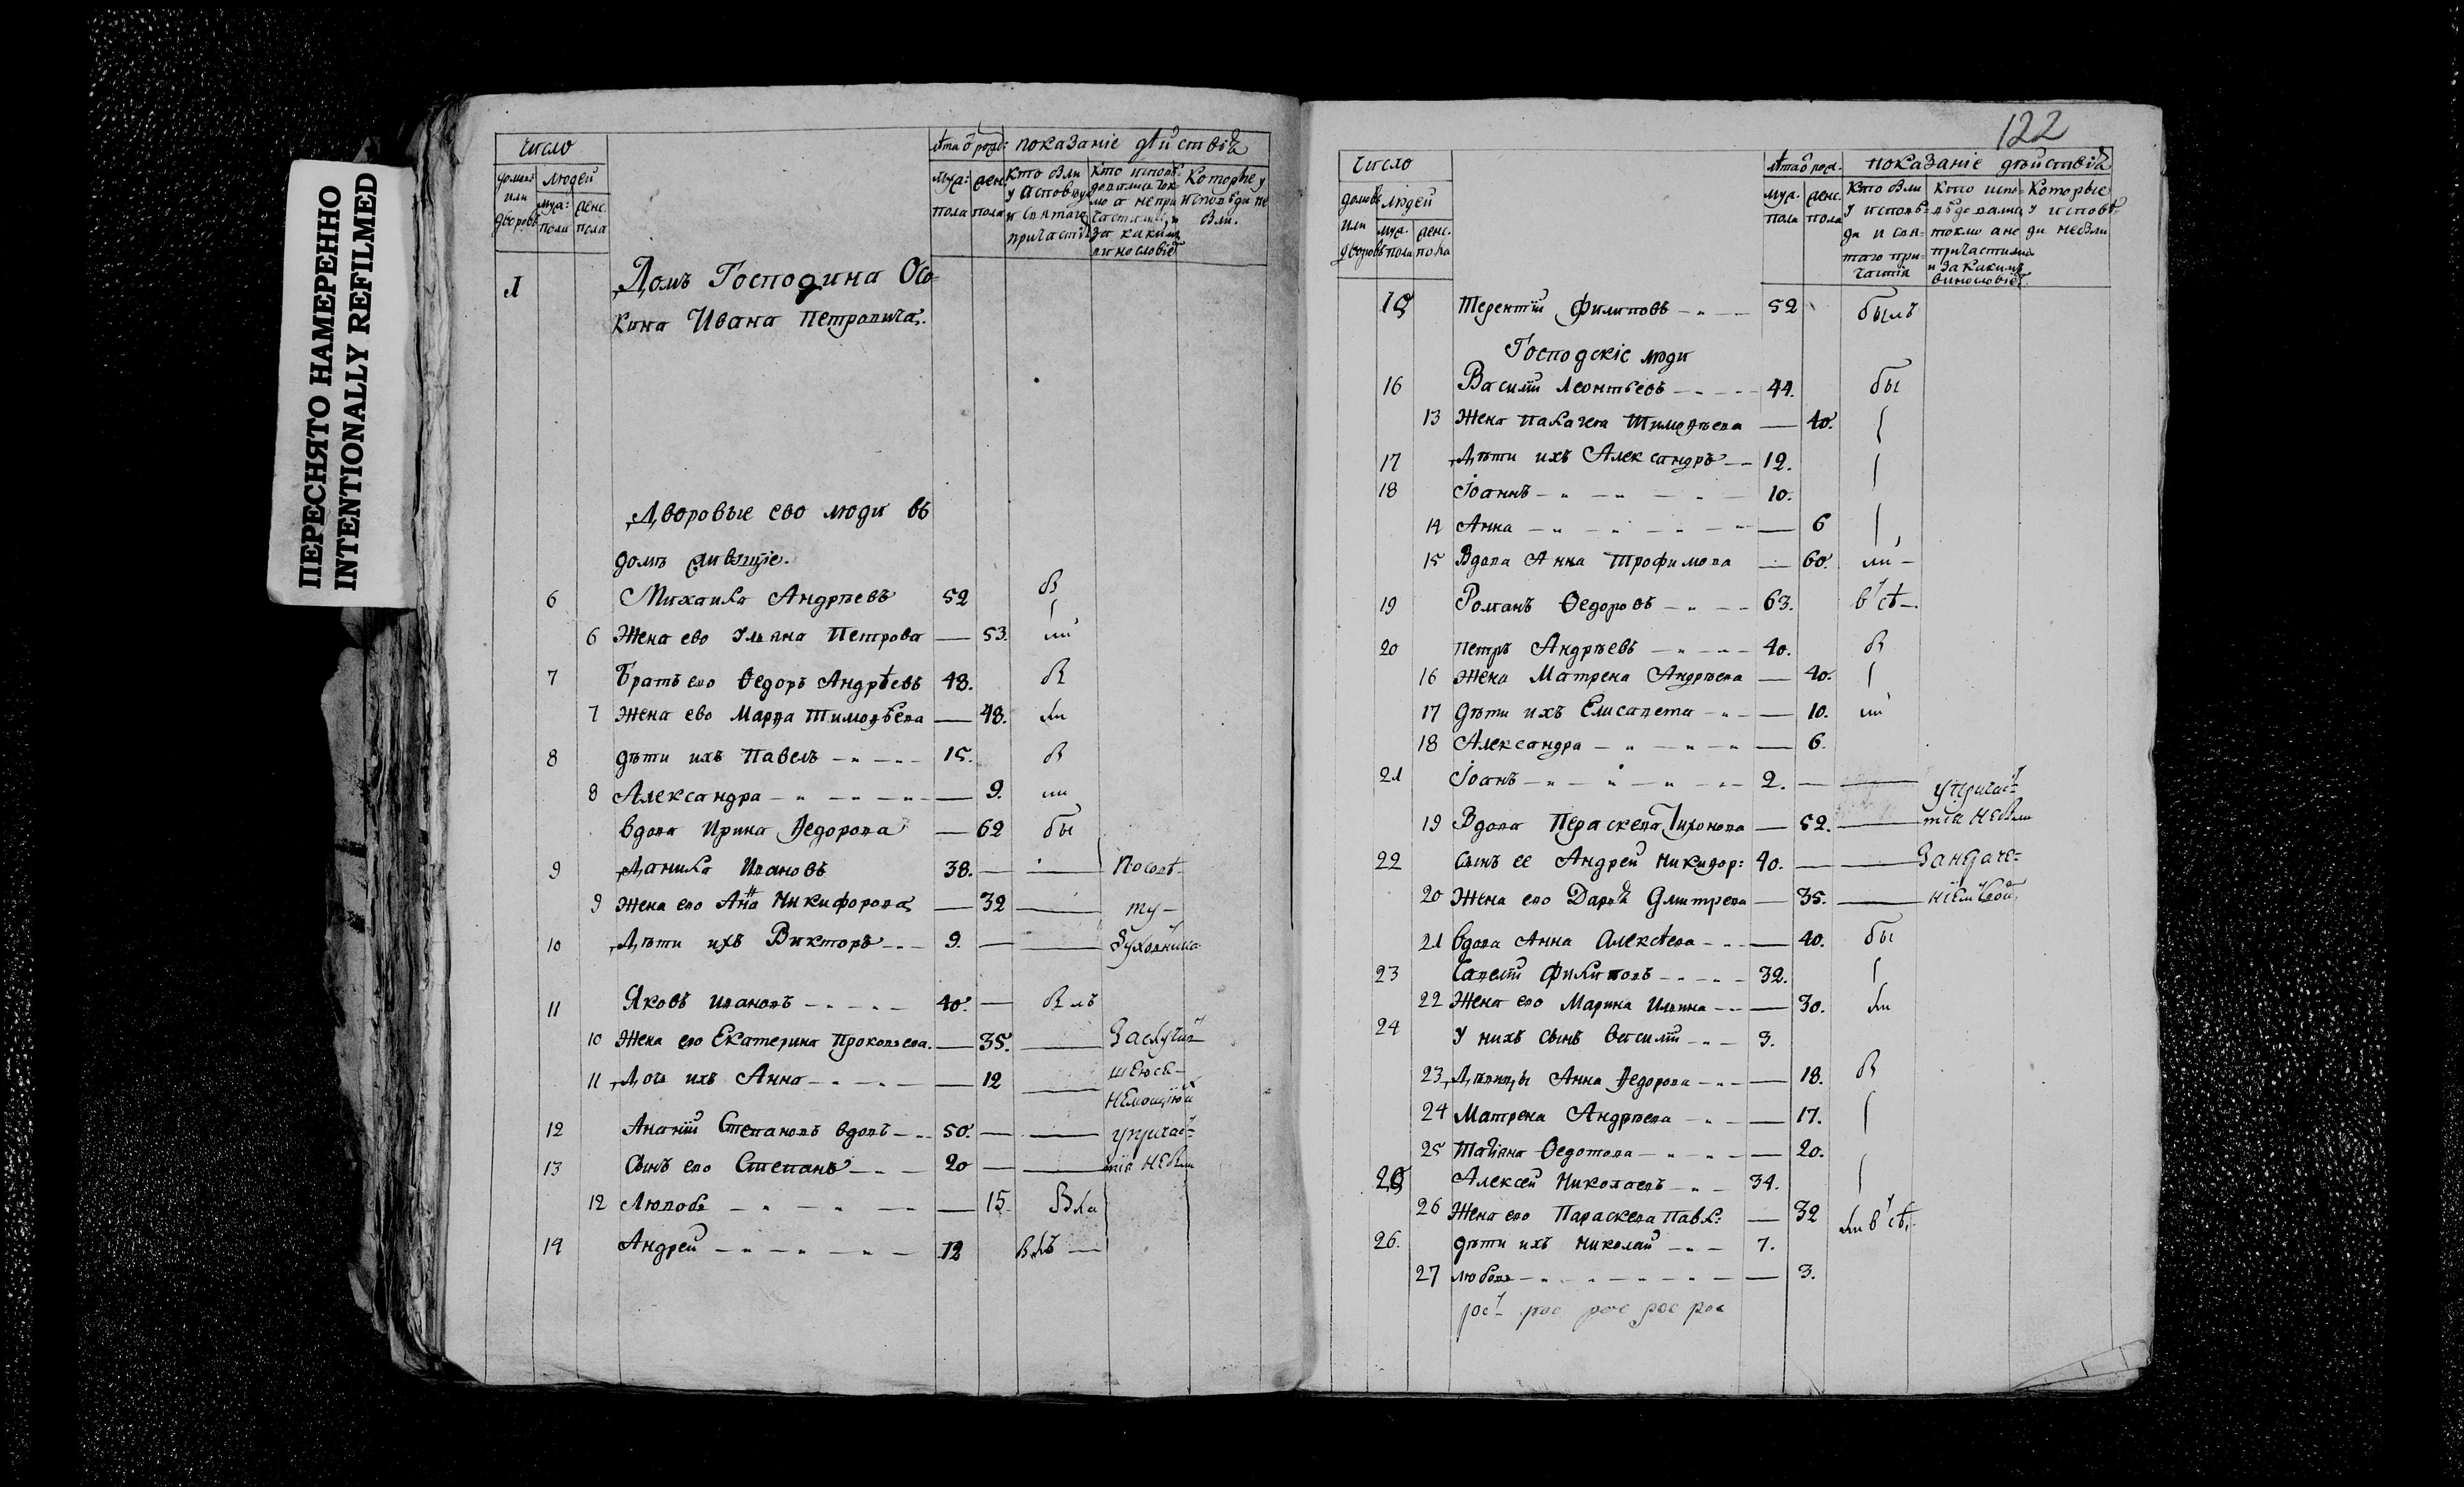 ПЕРЕСНЯТО НАМЕРЕННО
INTENTIONALLY REFILMED
число
лѣта ѿ рожд: показаніе дѣйствiѧ
домовъ или дворовъ
людей
муж: пола
женс. пола
муж: пола
женс. пола
Кто были у исповѣди и святаго причастіѧ
Кто исповѣдовались токмо а не причастились и за какимъ винословіемъ
Которые у исповѣди не были.
1 Домъ Господина Осо-
кина Ивана Петровича.
Дворовые ево люди въ
домѣ живущіе.
6 Михаила Андрѣевъ 52 б
6 Жена ево Ульяна Петрова — 53. ли
7 Братъ ево Ѳедоръ Андрѣевъ 48. б
7 Жена ево Марѳа Тимоѳѣева — 48. ли
8 дѣти ихъ Павелъ 15. б
8 Александра — 9. ли
вдова Ирина Ѳедорова — 62 бы
9 Данила Ивановъ 38. — — По совѣ-
9 Жена ево Анна Никифорова — 32 — ту —
10 Дѣти ихъ Викторъ 9. — — духовника
11 Яковъ Ивановъ 40. — былъ
10 Жена ево Екатерина Прокопьева. — 35. — Заслучив-
11 Дочь ихъ Анна — 12 — шеюсѧ
немощію
12 Ананій Степановъ вдовъ 50. — — упричас-
13 Сынъ ево Степанъ 20 — — тіѧ не были
12 Любовь — 15. Была
14 Андрей 12 былъ —
122
число
лѣта ѿ рожд. показаніе дѣйствіѧ
домовъ или дворовъ
людей
муж. пола
женс. пола
муж. пола
женс. пола
Кто были у исповѣди и святаго причастія
Кто исповѣдовались токмо а не причастились и за какимъ винословіемъ
Которые у исповѣди не были
15 Терентій Филиповъ 52 былъ
Господскіе люди
16 Василій Леонтьевъ 44. бы
13 Жена Палагея Тимоѳѣева — 40.
17 Дѣти ихъ Александръ 12.
18 Іоаннъ 10.
14 Анна — 6
15 Вдова Анна Трофимова — 60. ли —
19 Романъ Ѳедоровъ 63.
20 Петръ Андрѣевъ 40. б
16 Жена Матрена Андрѣева — 40.
17 Дѣти ихъ Елисавета — 10. ли
18 Александра — 6.
21 Іоанъ 2. — — упричас-
19 Вдова Параскева Тихонова — 52. — тіѧ не были
22 Сынъ ее Андрей Никифор: 40. — —
20 Жена ево Дарьѧ Дмитрева — 35. —
21 Вдова Анна Алексѣева — 40. бы
23 Савелій Филиповъ 32.
22 Жена ево Марина Ильина — 30. ли
24 У нихъ сынъ Василій 3.
23 Дѣвицы Анна Ѳедорова — 18. б
24 Матрена Андрѣева — 17.
25 Татіана Ѳедотова — 20.
25 Алексей Николаевъ 34.
26 Жена ево Параскева Павл: — 32 ли
26. дѣти ихъ Николай 7.
27 любовь — 3.
рос рос рос рос рос